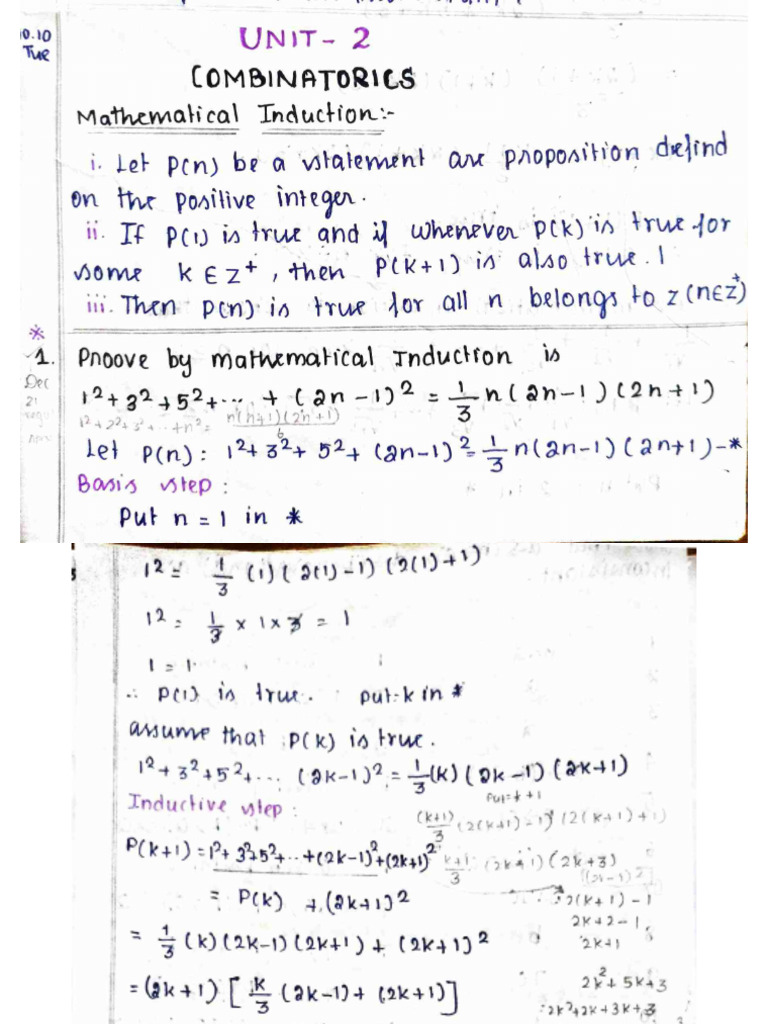 10.10
Tue
UNIT- 2
COMBINATORICS
Mathematical Induction:-
i. Let P(n) be a statement are proposition defind
on the positive integer.
ii. If P(1) is true and if whenever P(k) is true for
some k ∈ z⁺, then P(k+1) is also true.
iii. Then P(n) is true for all n belongs to z (n∈z⁺)
*
1. Proove by mathematical Induction is
Dec
21
1²+3²+5²+... + (2n-1)² = 1/3 n(2n-1)(2n+1)
1²+2²+3²+...+n² = n(n+1)(2n+1)/6
Let P(n): 1²+3²+5²+(2n-1)² = 1/3 n(2n-1)(2n+1)-*
Basis step:
Put n = 1 in *
1² = 1/3 (1)(2(1)-1)(2(1)+1)
1² = 1/3 × 1 × 3 = 1
1 = 1
∴ P(1) is true. put=k in *
assume that P(k) is true.
1²+3²+5²+... (2k-1)² = 1/3 (k)(2k-1)(2k+1)
Inductive step:
(k+1)/3 (2(k+1)-1)(2(k+1)+1)
P(k+1) = 1²+3²+5²+..+(2k-1)²+(2k+1)²
k+1/3 (2k+1)(2k+3)
= P(k) + (2k+1)²
2(k+1)-1
2k+2-1
= 1/3 (k)(2k-1)(2k+1) + (2k+1)²
2k+1
= (2k+1) [k/3 (2k-1) + (2k+1)]
2k²+5k+3
2k²+2k+3k+3